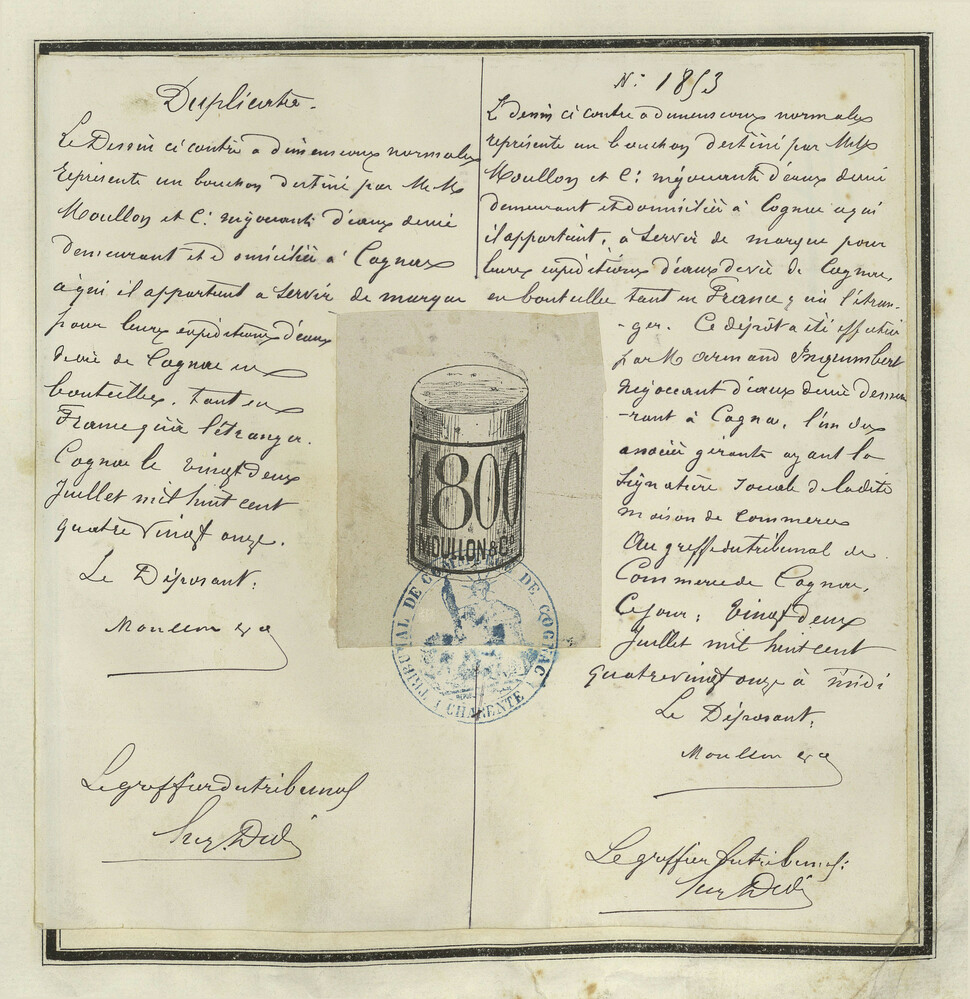 Duplicata.
Le Dessin ci contre a dimensions normales
représente un bouchon destiné par M M
Moullon et Cie négociants d'eaux de vie
demeurant et domiciliés à Cognac
à qui il appartient a servir de marque
pour leurs expéditions d'eaux
de vie de Cognac en
bouteilles, tant en
France qu'à l'étranger.
Cognac le vingt deux
Juillet mil huit cent
quatre vingt onze.
Le Déposant:
Moullon & Cie
Le greffier du tribunal
No: 1853
Le dessin ci contre a dimensions normales
représente un bouchon destiné par MM
Moullon et Cie négociants d'eaux de vie
demeurant et domiciliés à Cognac a qui
il appartient, à servir de marque pour
leurs expéditions d'eaux de vie de Cognac,
en bouteilles tant en France qu'à l'étran-
-ger. Ce dépôt a été effectué
par M Armand Inquimbert
négociant d'eaux de vie demeu
-rant à Cognac, l'un des
associés gérants ayant la
signature sociale de la dite
maison de commerce
Au greffe du tribunal de
Commerce de Cognac,
Ce jour; Vingt deux
Juillet mil huit cent
quatre vingt onze à midi
Le Déposant:
Moullon & Cie
Le greffier du tribunal:
1800
MOULLON & Co
TRIBUNAL DE COMMERCE DE COGNAC
(CHARENTE)